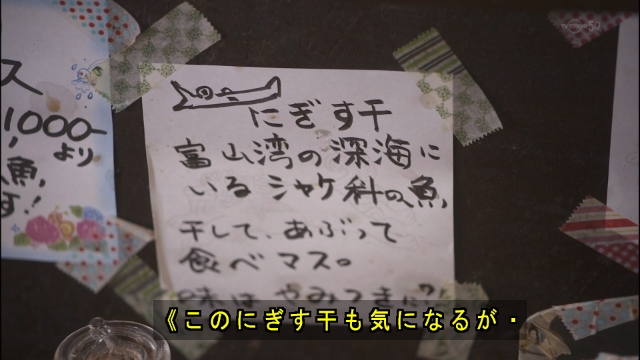 にぎす干
富山湾の深海に
いるシャケ科の魚
干して、あぶって
食べマス。
味はやみつき
ス
1000-
より
魚,
す!
《このにぎす干も気になるが・